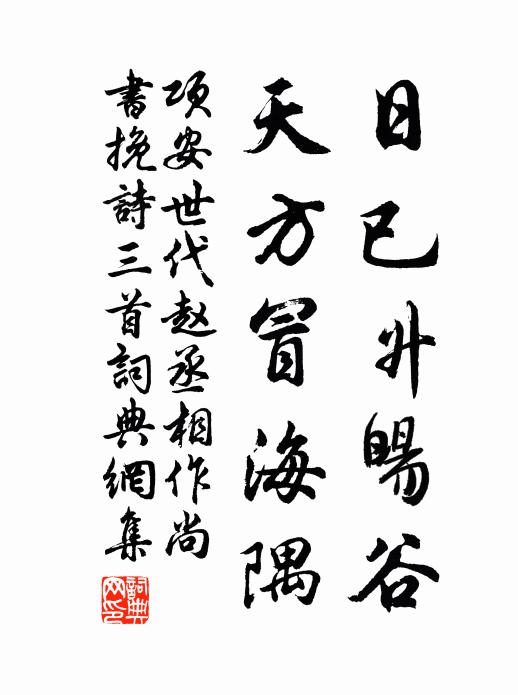 日已升暘谷
天方冒海隅
项安世代赵丞相作尚
書挽詩三首詞典網集
詞典